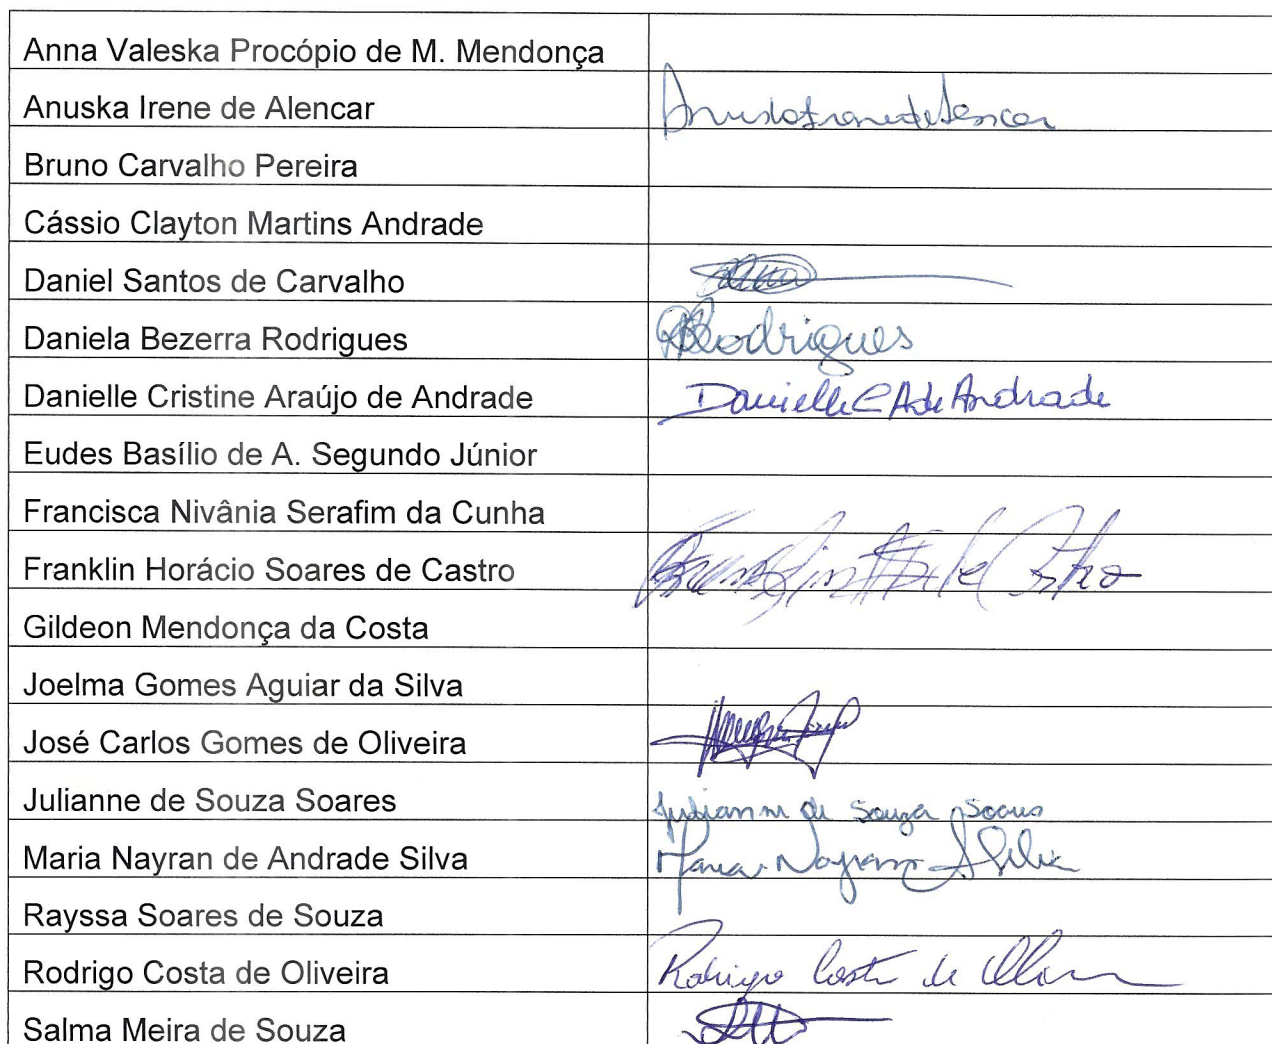 Anna Valeska Procópio de M. Mendonça
Anuska Irene de Alencar
Bruno Carvalho Pereira
Cássio Clayton Martins Andrade
Daniel Santos de Carvalho
Daniela Bezerra Rodrigues Rodrigues
Danielle Cristine Araújo de Andrade Danielle C A de Andrade
Eudes Basílio de A. Segundo Júnior
Francisca Nivânia Serafim da Cunha
Franklin Horácio Soares de Castro
Gildeon Mendonça da Costa
Joelma Gomes Aguiar da Silva
José Carlos Gomes de Oliveira
Julianne de Souza Soares Julianne de Souza Soares
Maria Nayran de Andrade Silva Maria Nayran A Silva
Rayssa Soares de Souza
Rodrigo Costa de Oliveira Rodrigo Costa de
Salma Meira de Souza